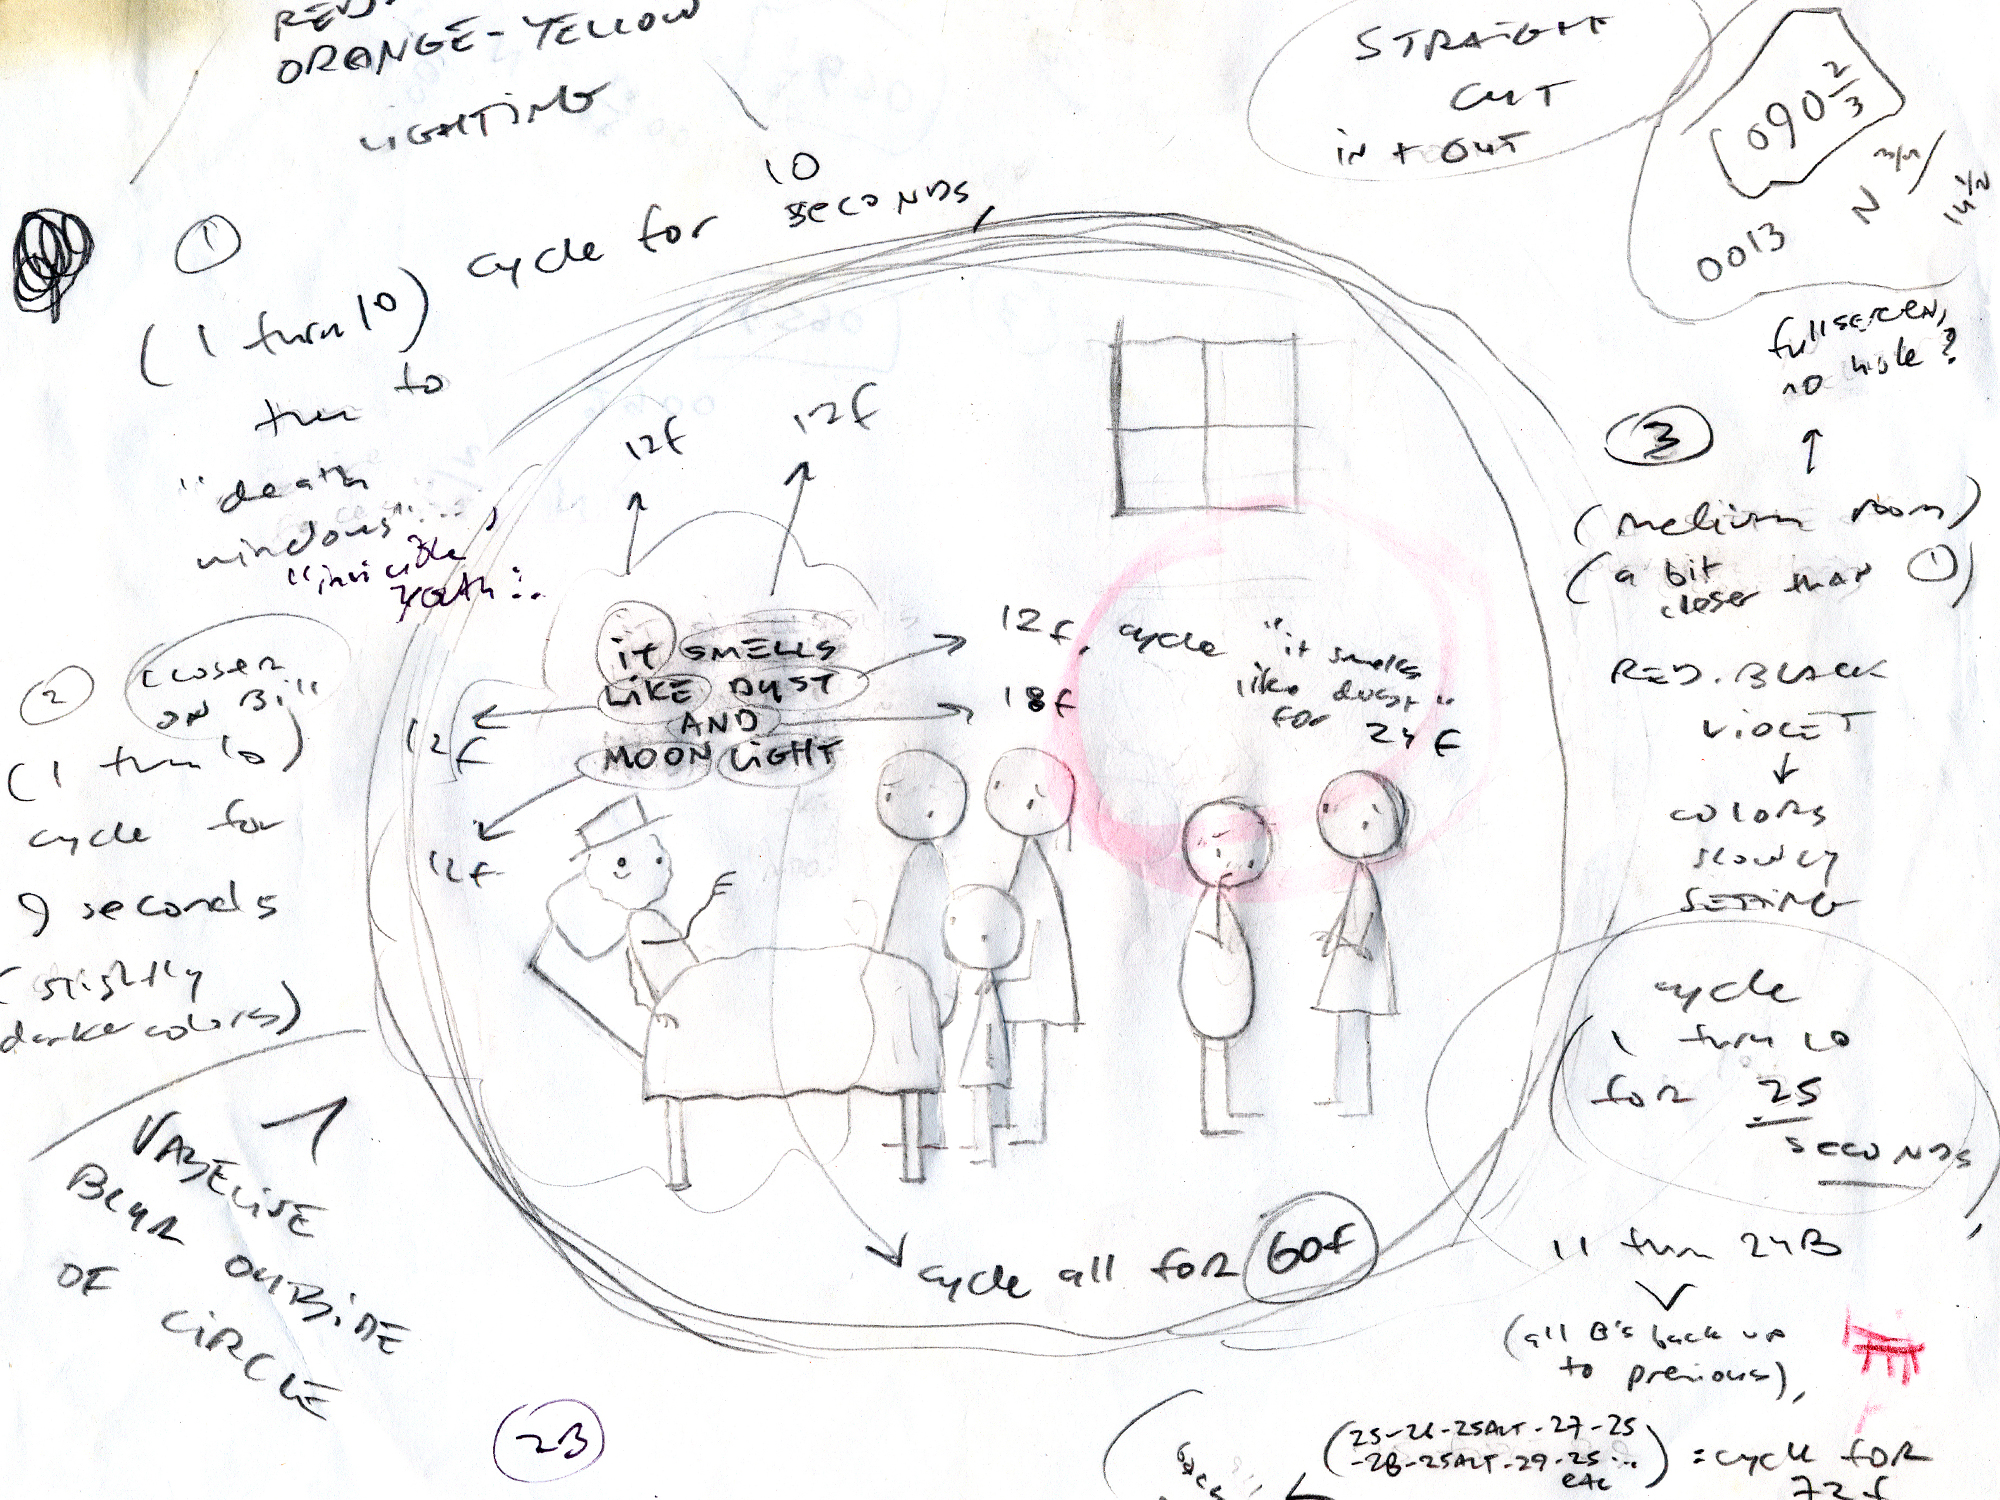 ORANGE-YELLOW
LIGHTING
STRAIGHT
CUT
iN + OUT
090 2/3
0013 N
14 1/2
fullscreen,
no hole?
1
(1 turn 10) cycle for 10 seconds,
then to
"death
windows"...,
"invisible
youth"..
12f
12f
it SMELLS
LIKE DUST
AND
MOON LIGHT
12f, cycle "it smells
like dust"
for 24f
18f
12f
12f
2
CLOSER
ON Bill
(1 turn 10)
cycle for
9 seconds
(slightly
darker colors)
VASELINE
BLUR OUTSIDE
OF CIRCLE
3
(medium room)
(a bit
closer than 1)
RED. BLACK
VIOLET
COLORS
SLOWLY
SETTING
cycle
1 turn 10
for 25
SECONDS,
11 turn 24B
(all B's back up
to previous),
cycle all for 60f
2B
(25-26-25ALT-27-25
-28-25ALT-29-25...
etc) = cycle FOR
72f